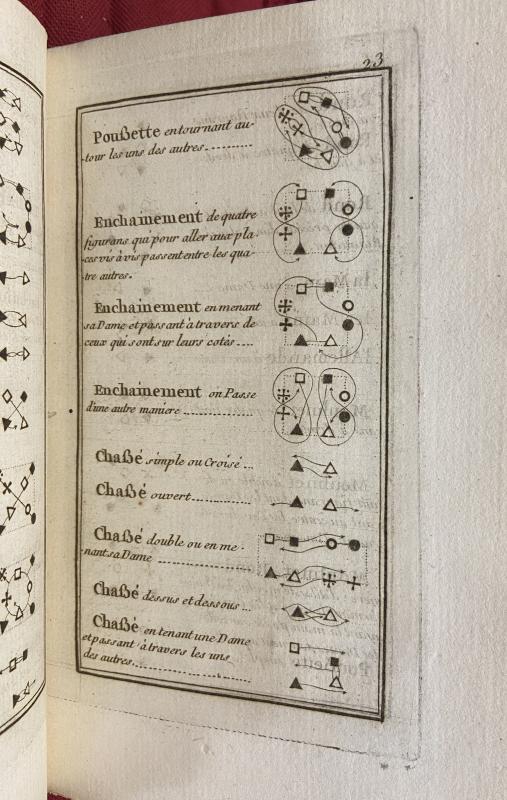 23
Poußette en tournant au-
tour les uns des autres..........
Enchainement de quatre
figurans qui pour aller aux pla-
ces vis à vis passent entre les qua-
tre autres.
Enchainement en menant
sa Dame et passant à travers de
ceux qui sont sur leurs cotés....
Enchainement on Passe
d'une autre maniere ...............
Chaßé simple ou Croisé ...
Chaßé ouvert..............
Chaßé double ou en me-
nant sa Dame ....................
Chaßé dessus et dessous...
Chaßé en tenant une Dame
et passant à travers les uns
des autres..........................